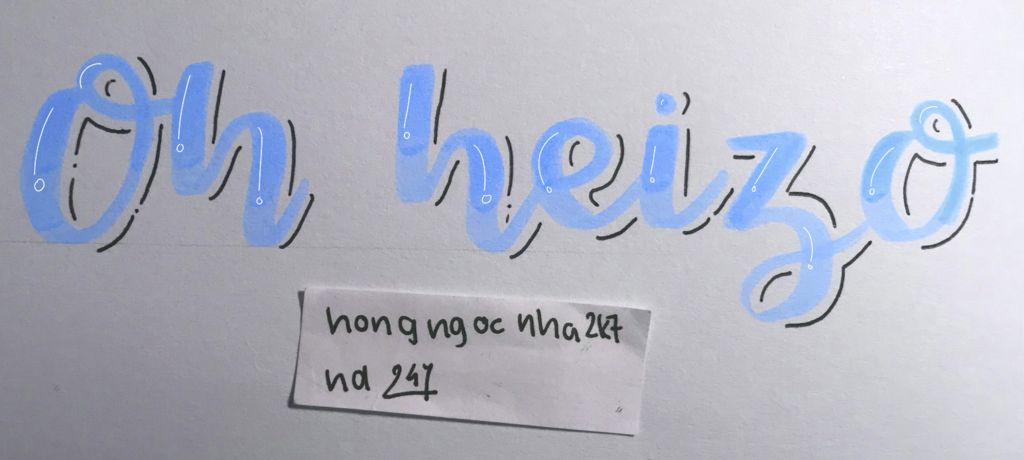 Oh heizo
hong ngoc nha2k7
nd 247